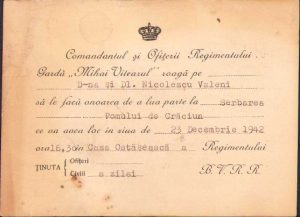 Comandantul și Ofițerii Regimentului
Gardă „Mihai Viteazul" roagă pe
D-na și Dl. Nicolescu Valeni
să le facă onoarea de a lua parte la Serbarea
Pomului de Crăciun
ce va avea loc în ziua de 23 Decembrie 1942
ora 16,30 în Casa Ostășească a Regimentului
ȚINUTA
Ofițeri
Civili
a zilei
B. V. R. R.